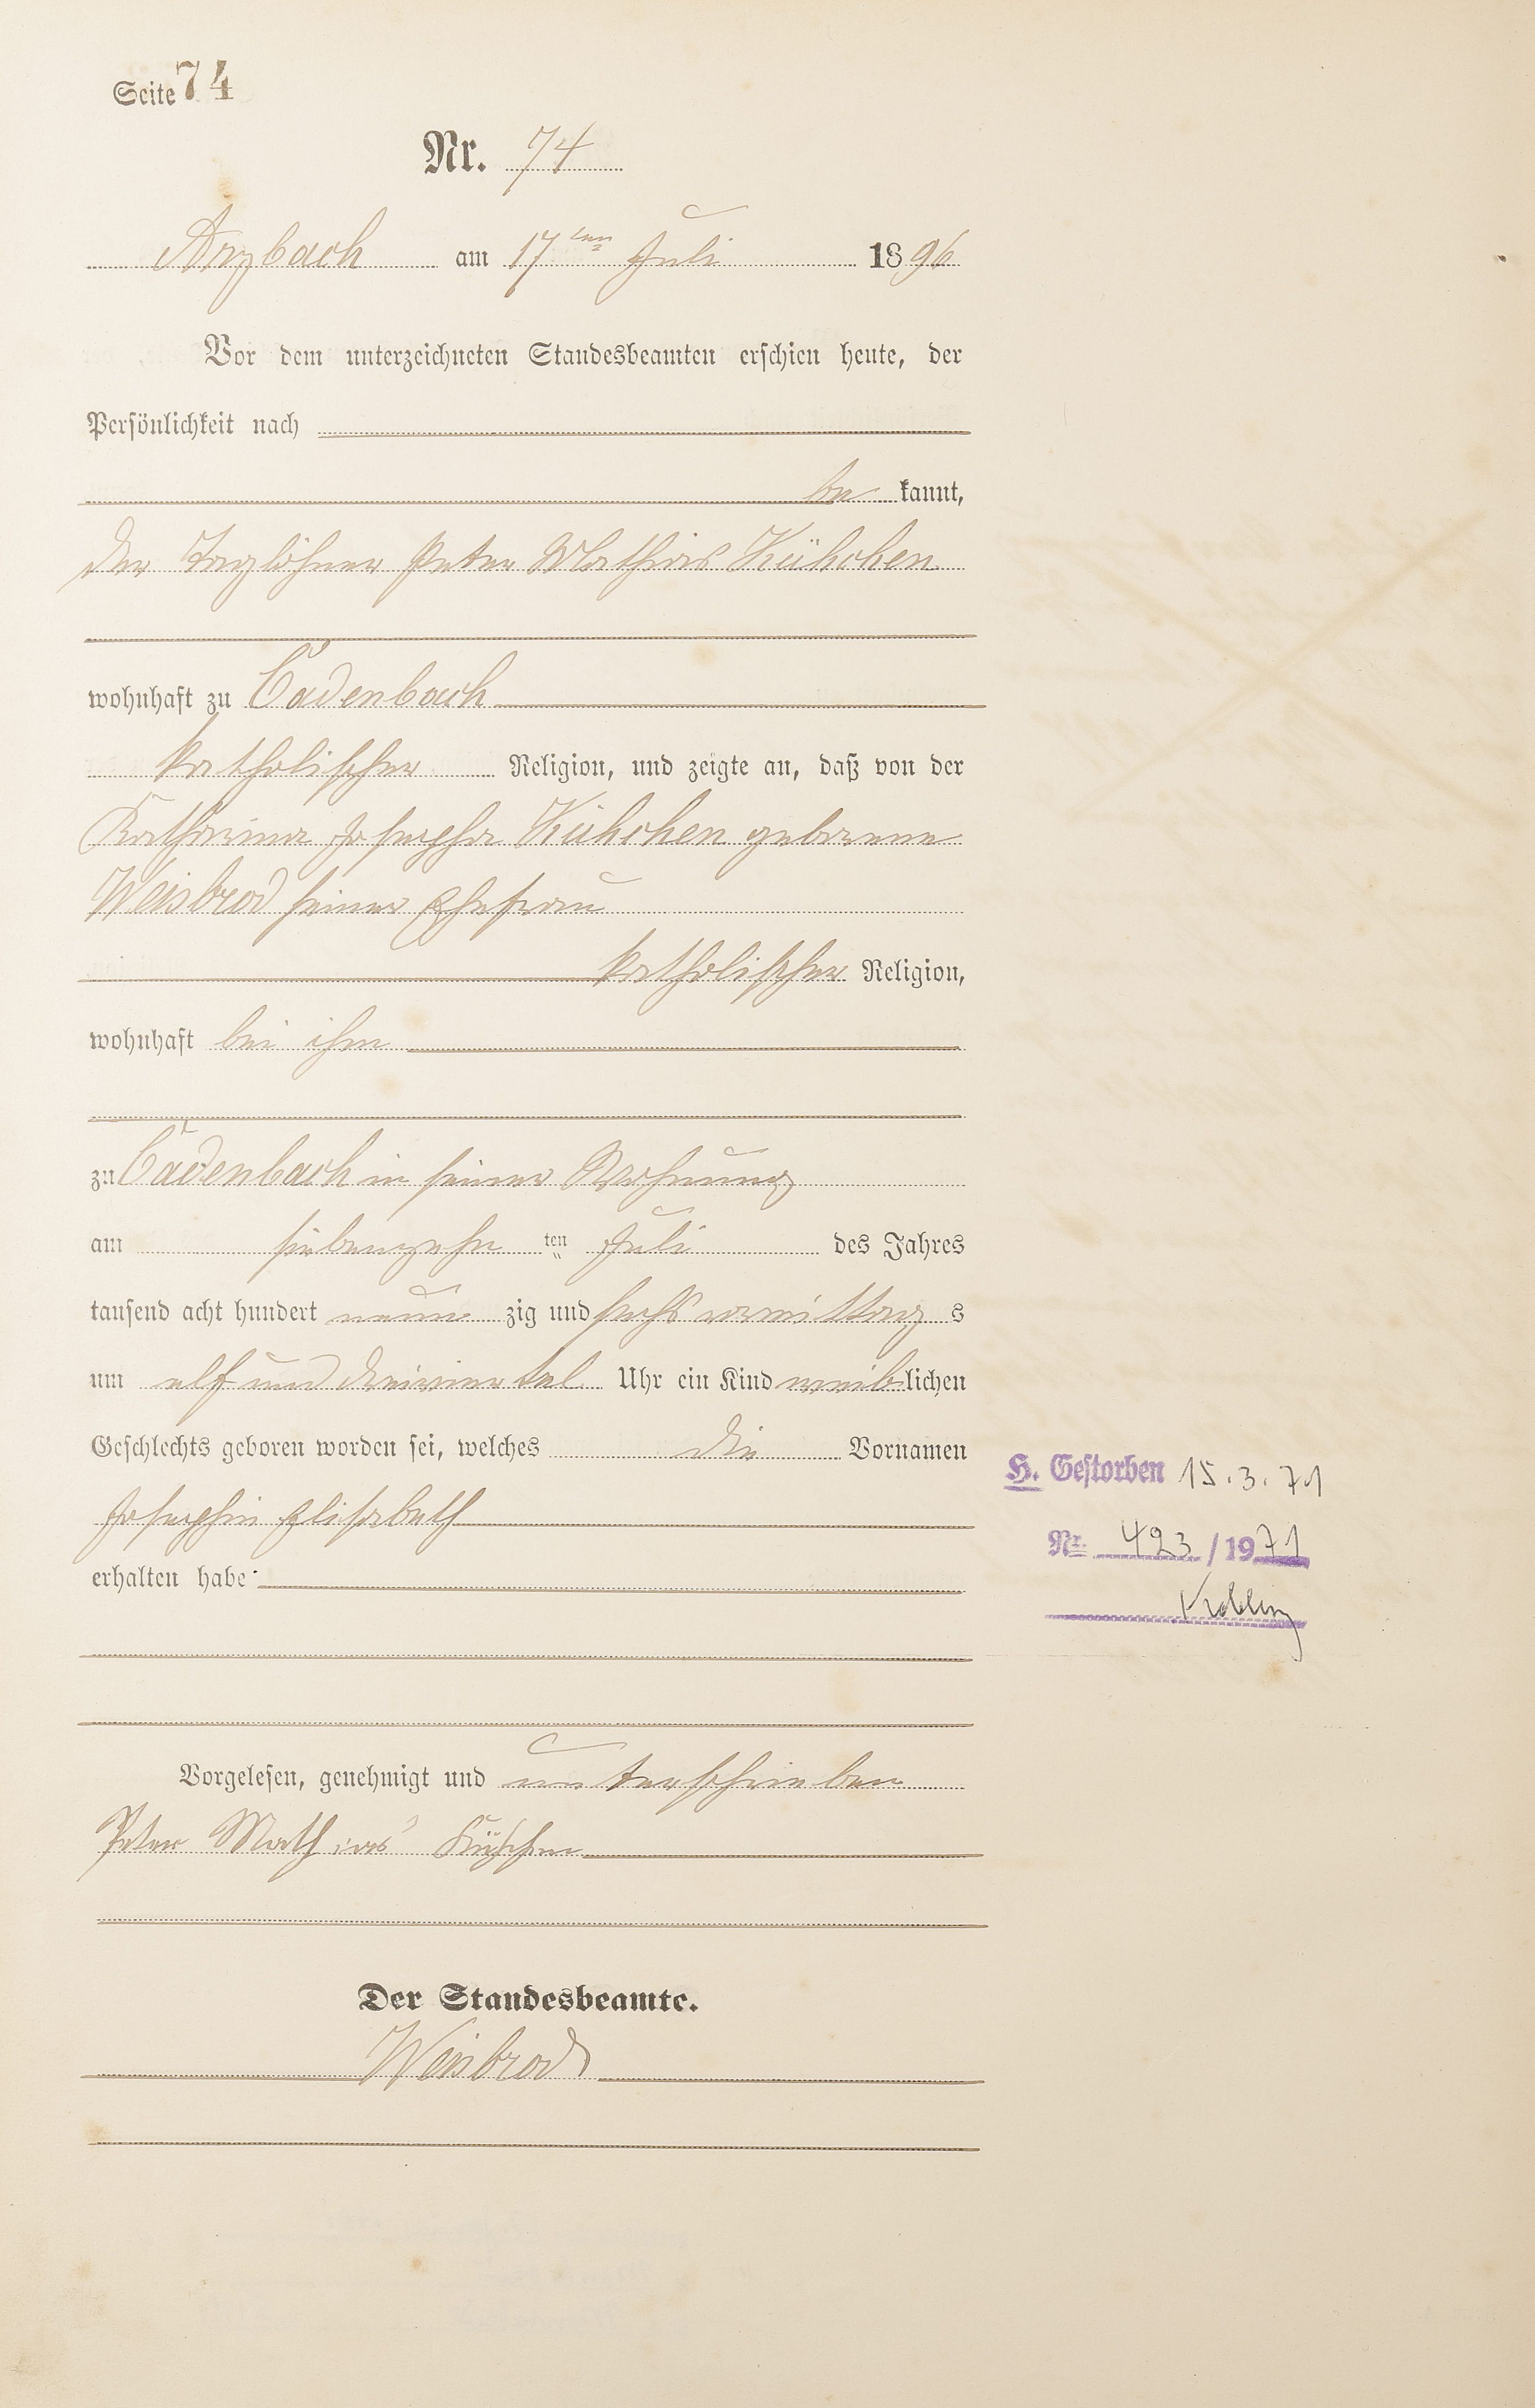 Seite 74
Nr. 74
Arzbach am 17ten Juli 1896
Vor dem unterzeichneten Standesbeamten erschien heute, der
Persönlichkeit nach
be kannt,
der Taglöhner Peter Mathias Kühchen
wohnhaft zu Cadenbach
katholischer Religion, und zeigte an, daß von der
Katharina Josepha Kühchen geborene
Weisbrod seiner Ehefrau
katholischer Religion,
wohnhaft bei ihm
zu Cadenbach in seiner Wohnung
am siebenzehn ten Juli des Jahres
tausend acht hundert neun zig und sechs vormittag s
um elf und dreiviertel Uhr ein Kind weiblichen
Geschlechts geboren worden sei, welches die Vornamen
Josephin Elisabeth
erhalten habe
Vorgelesen, genehmigt und unterschrieben
Peter Mathias Kühchen
Der Standesbeamte.
Weisbrod
H. Gestorben 15.3.71
Nr. 423/1971